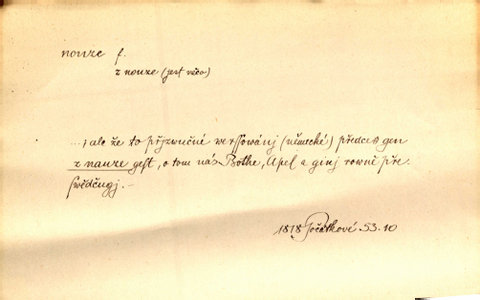 nouze f.
z nouze (jest něco)
...; ale že to přjzwučné werssowánj (německé) předce gen
z nauze gest, o tom nás Bothe, Apel a ginj rowně pře-
swědčugj. —
1818 Počátkové 53.10